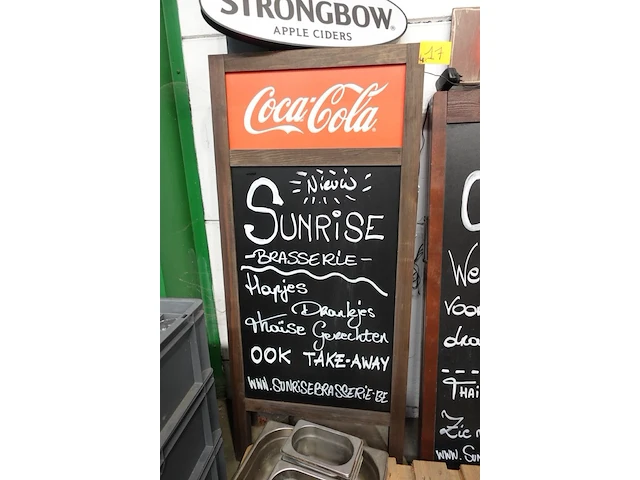 STRONGBOW
APPLE CIDERS
17
Coca-Cola
Nieuw
SUNRiSE
-BRASSERiE-
Hapjes
Drankjes
Thaïse Gerechten
OOK TAKE-AWAY
WWW.SUNRISEBRASSERIE.BE
We
voor
THAï
WWW.SUN